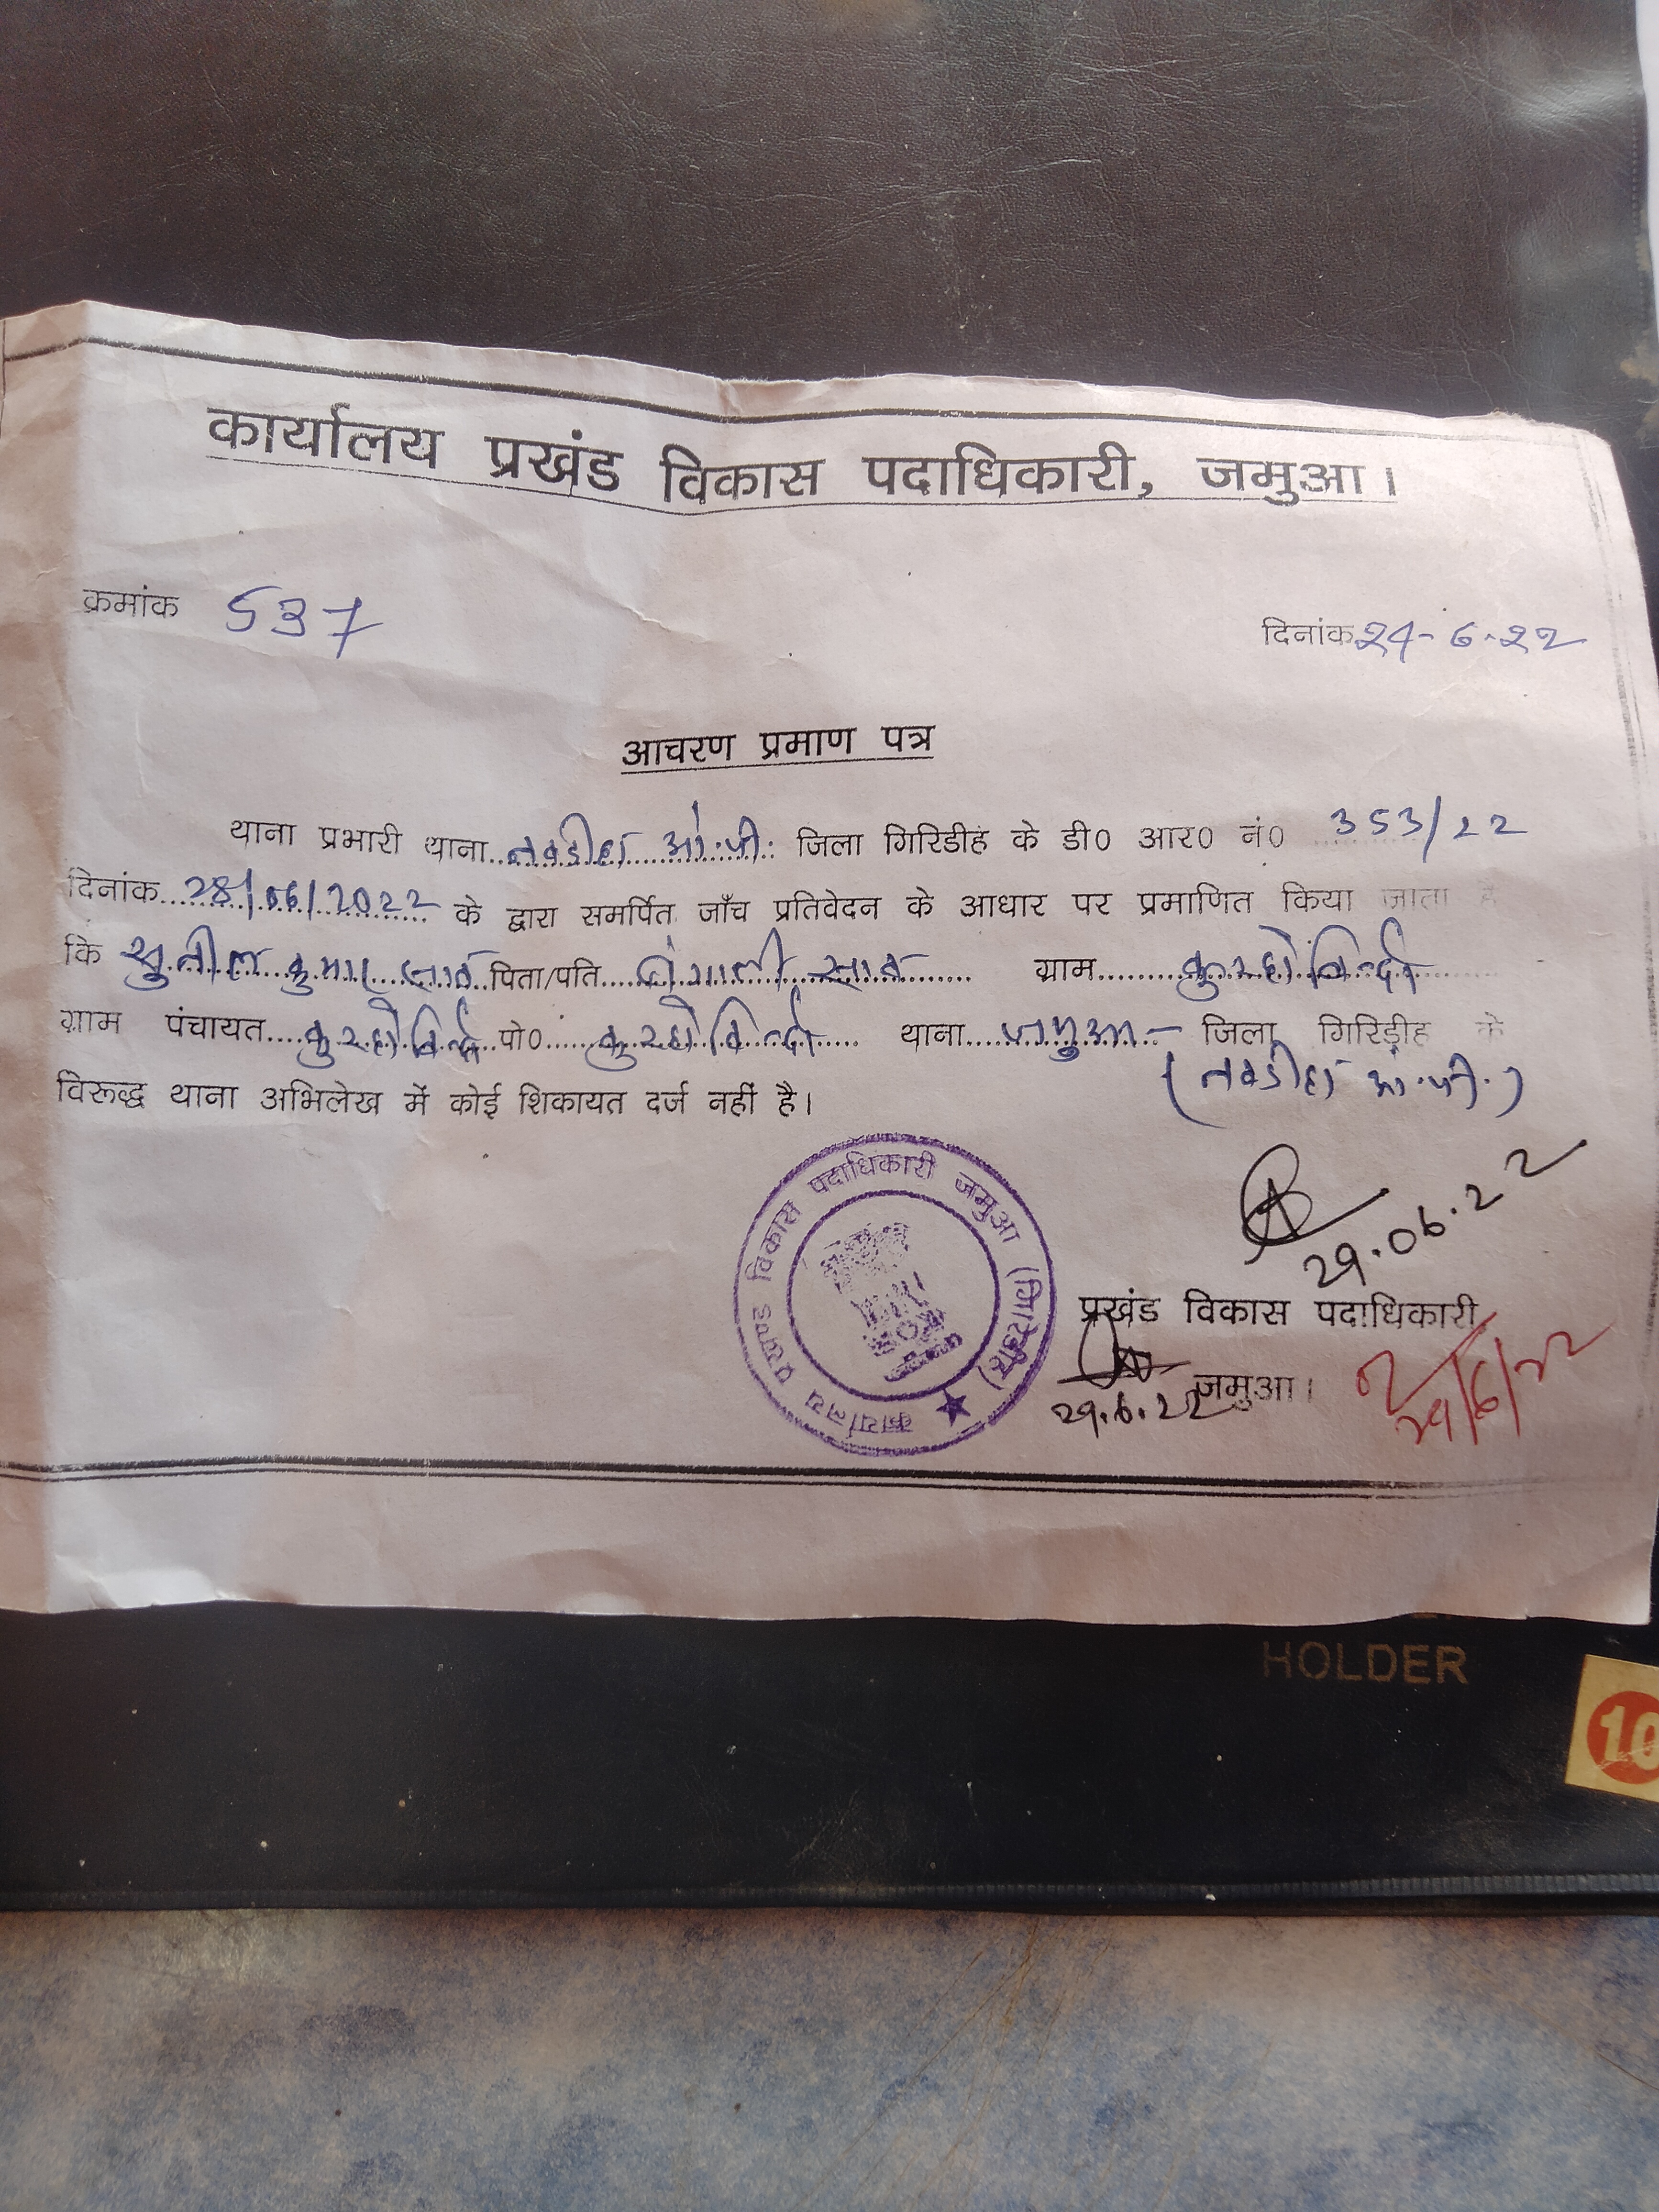 कार्यालय प्रखंड विकास पदाधिकारी, जमुआ।
क्रमांक 537
दिनांक 24-6-22
आचरण प्रमाण पत्र
थाना प्रभारी थाना..नवडीहा ओ.पी. जिला गिरिडीह के डी0 आर0 नं0 353/22
दिनांक 28/06/2022 के द्वारा समर्पित जाँच प्रतिवेदन के आधार पर प्रमाणित किया जाता है
कि सुनील कुमार साव पिता/पति साव ग्राम कुरहोबिन्दो
ग्राम पंचायत कुरहोबिन्दो पो0 कुरहोबिन्दो थाना जमुआ - जिला गिरिडीह के
(नवडीहा ओ.पी.)
विरूद्ध थाना अभिलेख में कोई शिकायत दर्ज नहीं है।
कार्यालय प्रखण्ड विकास पदाधिकारी जमुआ (गिरिडीह)
29.06.22
प्रखंड विकास पदाधिकारी,
जमुआ।
29.6.22
29/6/22
HOLDER
10